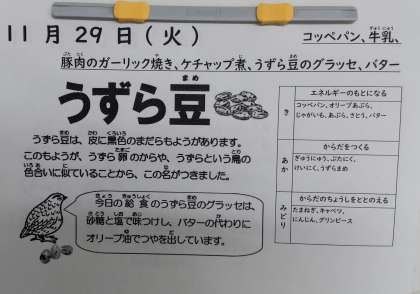 11月29日(火)
コッペパン、牛乳、
豚肉のガーリック焼き、ケチャップ煮、うずら豆のグラッセ、バター
うずら豆
うずら豆は、皮に黒色のまだらもようがあります。
このもようが、うずら卵のからや、うずらという鳥の
色合いに似ていることから、この名がつきました。
今日の給食のうずら豆のグラッセは、
砂糖と塩で味つけし、バターの代わりに
オリーブ油でつやを出しています。
エネルギーのもとになる
き
コッペパン、オリーブあぶら、
じゃがいも、あぶら、さとう、バター
からだをつくる
あか
ぎゅうにゅう、ぶたにく、
けいにく、うずらまめ
からだのちょうしをととのえる
みどり
たまねぎ、キャベツ、
にんじん、グリンピース